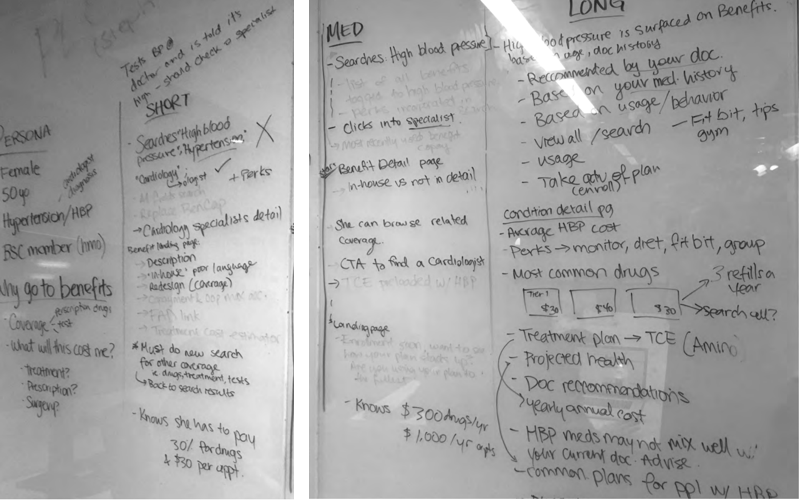 Tests BP @
doctor and is told it's
high - should check a specialist
PERSONA
Female
50 yo
Hypertension/HBP
cardiologist
diagnosis
BSC member (hmo)
Why go to benefits
- Coverage
perscription drugs
test
- What will this cost me?
- Treatment?
- Prescription?
- Surgery?
SHORT
- Searches "High blood
pressure", "Hypertension" X
"Cardiology" ✓
→ ologist + Perks
→ Cardiology specialists detail
Benefit landing page
- Description
- "in-house" poor language
- Redesign (coverage)
- FAD link
- Treatment cost estimator
* Must do new search
for other coverage
drugs, treatment, tests
↳ Back to search results
- Knows she has to pay
30% for drugs
+ $30 per appt.
MED
- Searches: High blood pressure
- list of all benefits
to high blood pressure
- perks
- Clicks into specialist
Benefit Detail page
- In-house vs not in detail
She can browse related
coverage.
- CTA to find a Cardiologist
→ TCE preloaded w/ HBP
* Landing page
- Knows $300 drugs/yr
$1,000/yr apts
LONG
- High blood pressure is surfaced on Benefits.
age, doc history
- Reccommented by your doc.
- Based on your med. history
- Based on usage/behavior
- View all/search
- Fit bit, tips
gym
- usage
- Take adv. of plan
(enroll)
condition detail pg
- Average HBP cost
- Perks → monitor, diet, fit bit, group
- Most common drugs
Tier 1
$30
$40
$30
3 refills a
year
search all?
- Treatment plan → TCE (Amino)
- Projected health
- Doc recommendations
yearly annual cost
- HBP meds may not mix well w/
your current doc. Advise.
- Common plans for ppl w/ HBP